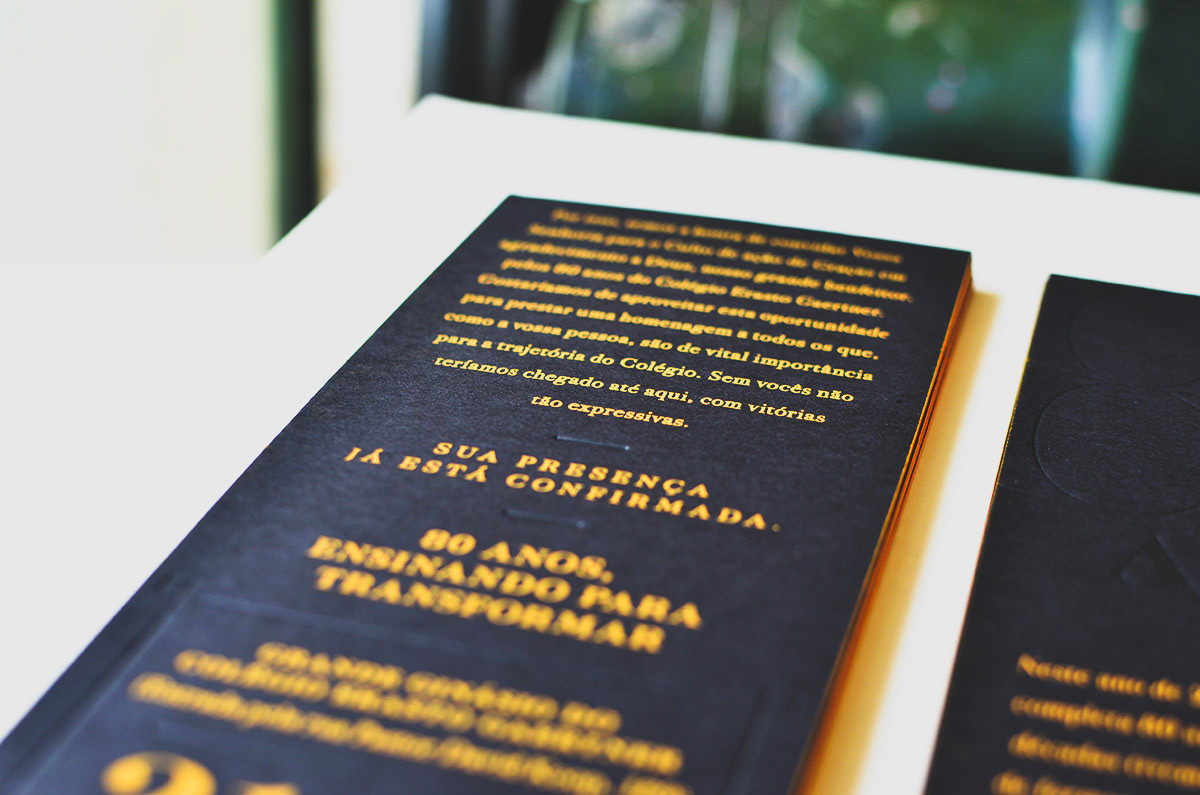 Por isso, temos a honra de convidar Vossa
Senhoria para o Culto de ação de Graças em
agradecimento a Deus, nosso grande benfeitor,
pelos 80 anos do Colégio Erasto Gaertner.
Gostaríamos de aproveitar esta oportunidade
para prestar uma homenagem a todos os que,
como a vossa pessoa, são de vital importância
para a trajetória do Colégio. Sem vocês não
teríamos chegado até aqui, com vitórias
tão expressivas.
SUA PRESENÇA
JÁ ESTÁ CONFIRMADA.
80 ANOS,
ENSINANDO PARA
TRANSFORMAR
GRANDE GINÁSIO DO
COLÉGIO ERASTO GAERTNER
Neste ano de
completa 80
décadas
de